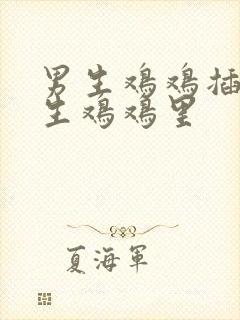 男生鸡鸡插
生鸡鸡里
夏海军